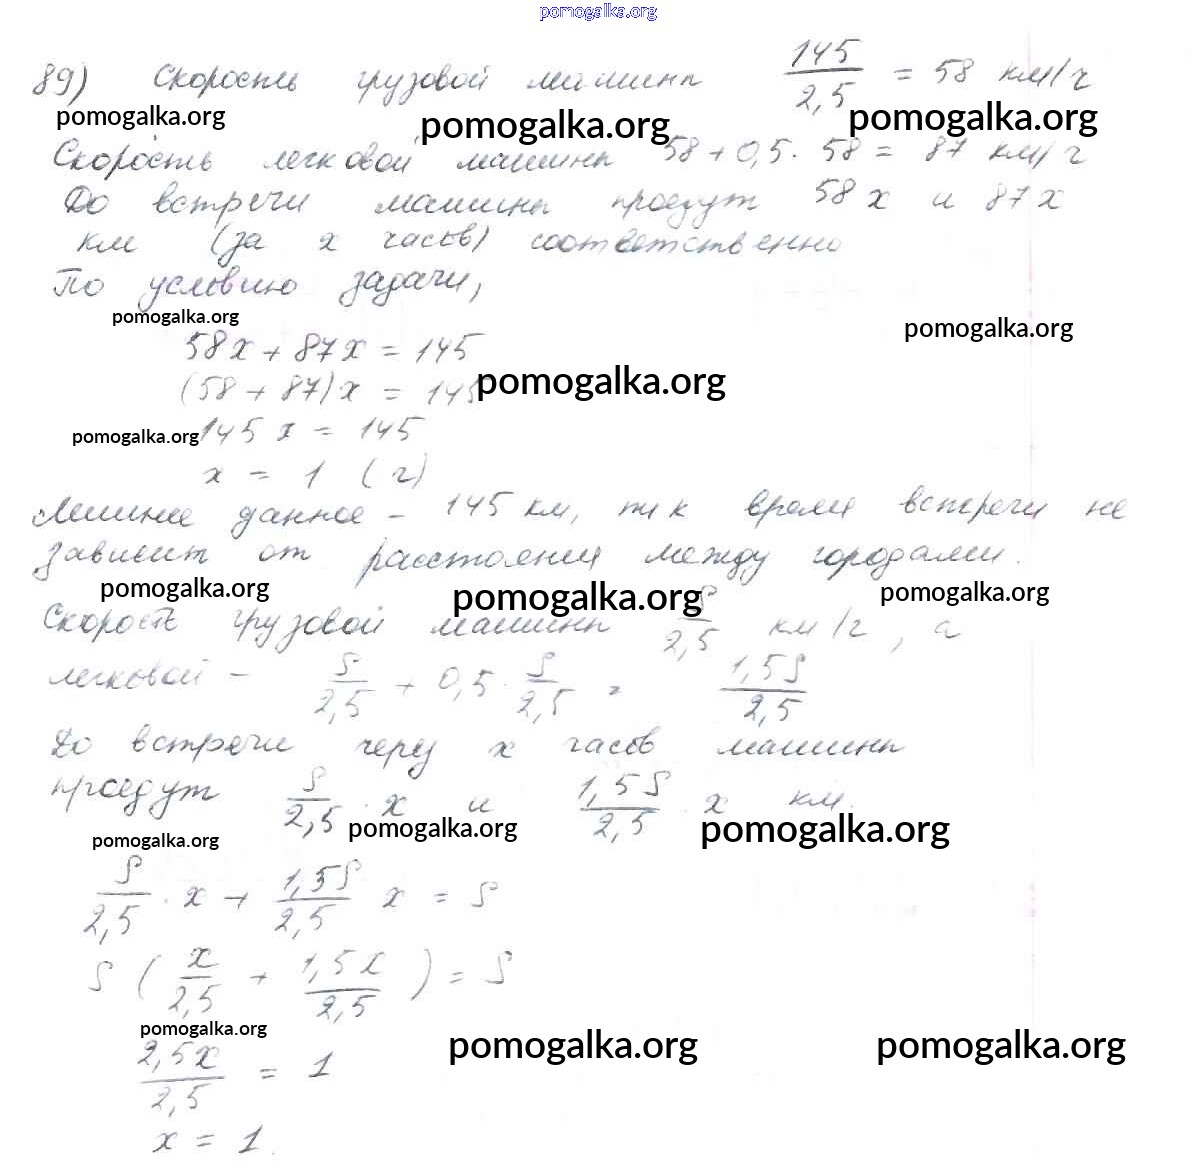 pomogalka.org
89) Скорость грузовой машины 145/2,5 = 58 км/ч
pomogalka.org pomogalka.org pomogalka.org
Скорость легковой машины 58 + 0,5 · 58 = 87 км/ч
До встречи машины проедут 58x и 87x
км (за x часов) соответственно
По условию задачи,
pomogalka.org pomogalka.org
58x + 87x = 145
(58 + 87)x = 145 pomogalka.org
pomogalka.org 145x = 145
x = 1 (ч)
Лишнее данное – 145 км, т к время встречи не
зависит от расстояния между городами.
pomogalka.org pomogalka.org pomogalka.org
Скорость грузовой машины S/2,5 км/ч, а
легковой – S/2,5 + 0,5 · S/2,5 = 1,5S/2,5
До встречи через x часов машины
проедут S/2,5 · x и 1,5S/2,5 · x км.
pomogalka.org pomogalka.org pomogalka.org
S/2,5 · x + 1,5S/2,5 x = S
S (x/2,5 + 1,5x/2,5) = S
pomogalka.org pomogalka.org pomogalka.org
2,5x/2,5 = 1
x = 1.